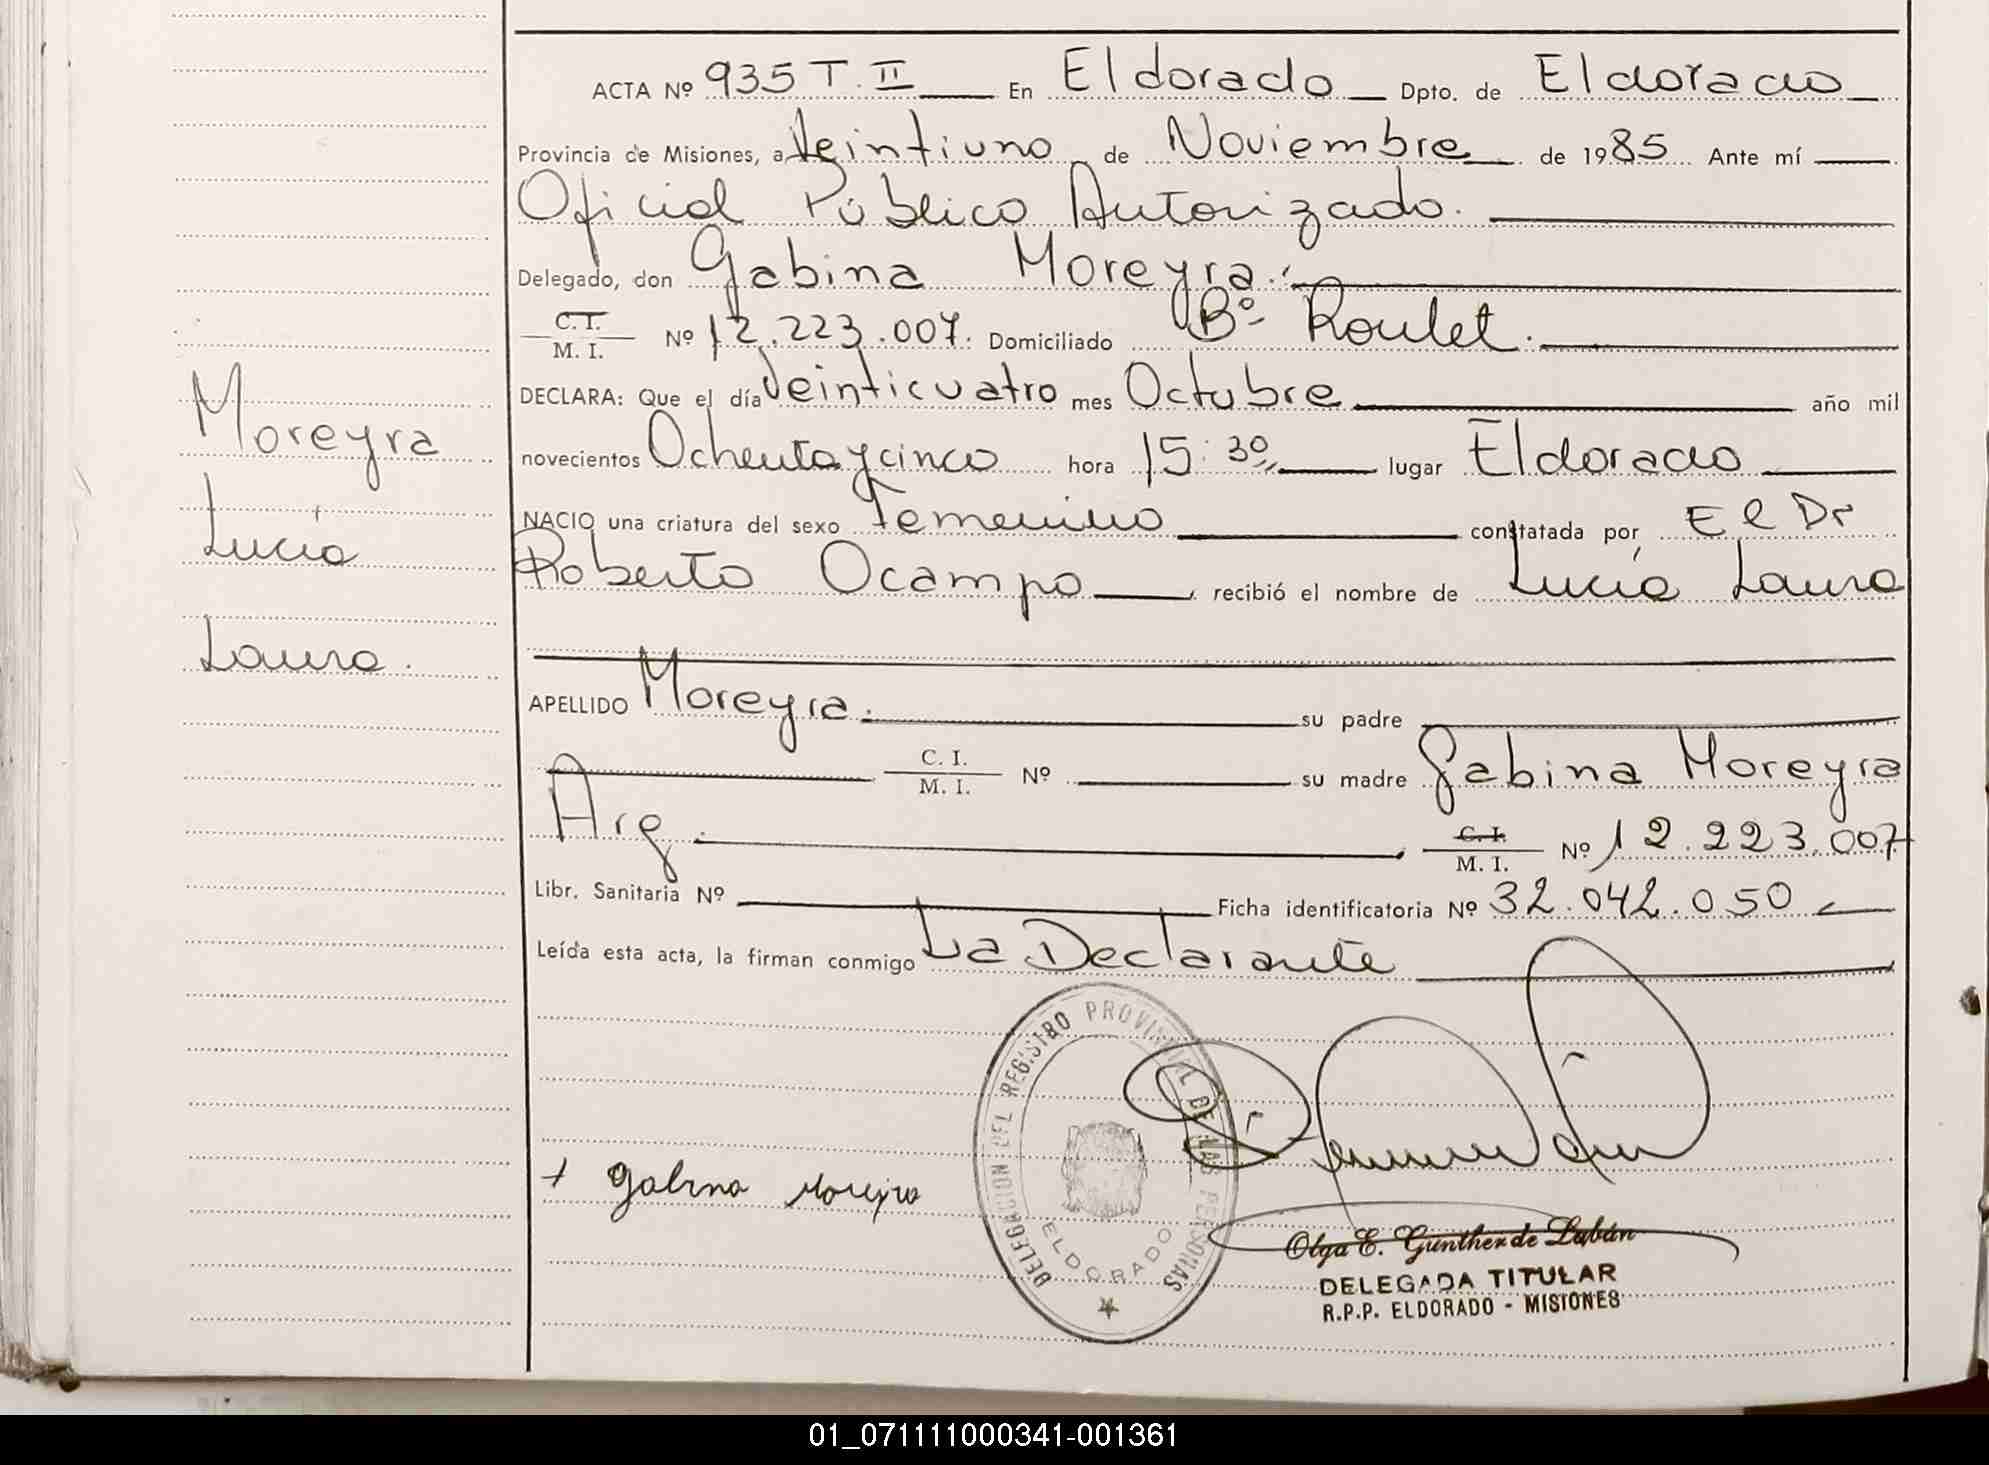 ACTA Nº 935 T. II En Eldorado Dpto. de Eldorado
Provincia de Misiones, a Veintiuno de Noviembre de 1985 Ante mí
Oficial Público Autorizado.
Delegado, don Gabina Moreyra.
C. I.
M. I. Nº 12.223.007. Domiciliado Bº Roulet.
DECLARA: Que el día Veinticuatro mes Octubre año mil
novecientos Ochenta y cinco hora 15:30 lugar Eldorado
NACIO una criatura del sexo Femenino constatada por El Dr
Roberto Ocampo recibió el nombre de Lucía Laura
APELLIDO Moreyra. su padre
C. I.
M. I. Nº su madre Gabina Moreyra
Arg. C. I.
M. I. Nº 12.223.007
Libr. Sanitaria Nº Ficha identificatoria Nº 32.042.050
Leída esta acta, la firman conmigo La Declarante
Moreyra
Lucía
Laura.
DELEGACION DEL REGISTRO PROVINCIAL DE LAS PERSONAS
ELDORADO
+ Gabina Moreira
Olga E. Gunther de Labán
DELEGADA TITULAR
R.P.P. ELDORADO - MISIONES
01_071111000341-001361